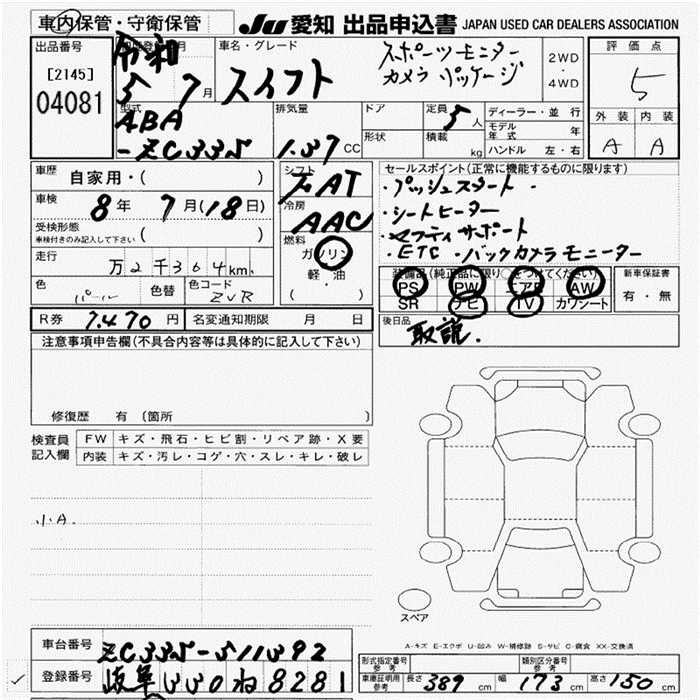 車内保管・守衛保管
JU 愛知 出品申込書 JAPAN USED CAR DEALERS ASSOCIATION
出品番号
[2145]
04081
令和
5 7月
車名・グレード
スイフト
スポーツモニター
カメラパッケージ
2WD
・
4WD
評価点
5
外装 内装
A A
型式
ABA
-ZC33S
排気量
1.37 CC
ドア
形状
定員 5人
積載 kg
ディーラー・並行
モデル年式 年
ハンドル 左・右
車歴 自家用・( )
車検 8年 7月(18日)
受検形態
車検付きのみ記入して下さい ( )
走行 万2千364km
色 パール 色替 色コード ZVR
シフト
FAT
冷房
AAC
燃料
ガソリン
軽・油
( )
セールスポイント(正常に機能するものに限ります)
・プッシュスタート・
・シートヒーター
・セーフティサポート
・ETC・バックカメラモニター
装備品(純正品に限り○をつけてください)
PS PW エアB AW
SR ナビ TV カワシート
新車保証書
有・無
R券 7,470円 名変通知期限 月 日
後日品
取説.
注意事項申告欄(不具合内容等は具体的に記入して下さい)
修復歴 有 (箇所
検査員
記入欄
FW キズ・飛石・ヒビ割・リペア跡・X要
内装 キズ・汚レ・コゲ・穴・スレ・キレ・破レ
小A.
スペア
A-キズ E-エクボ U-凹み W-補修跡 S-サビ C-腐食 XX-交換済
車台番号 ZC33S-511392
登録番号 岐阜 330 ね 8281
型式指定番号
参考
類別区分番号
参考
車庫証明用
参考
長さ 389 cm 幅 173 cm 高さ 150 cm